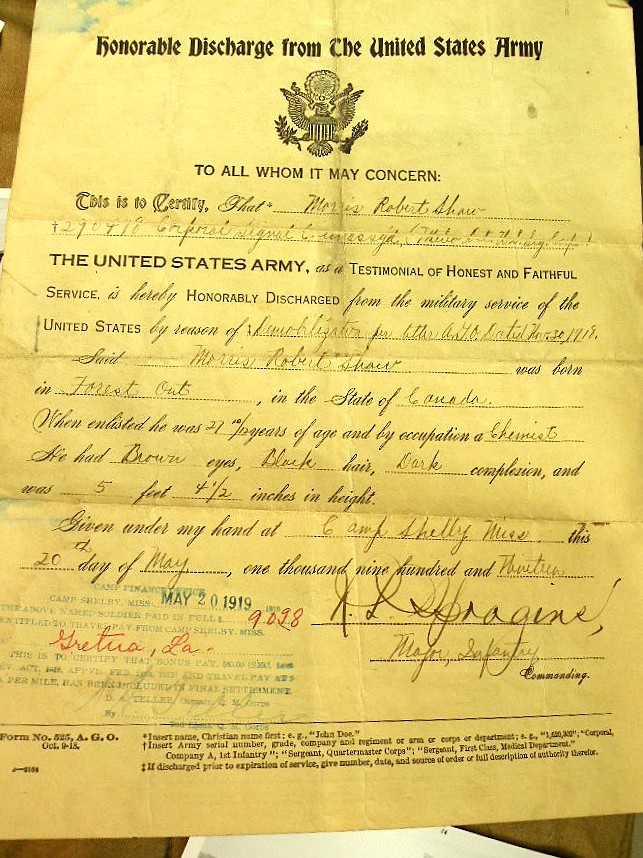 Honorable Discharge from The United States Army
TO ALL WHOM IT MAY CONCERN:
This is to Certify, That* Morris Robert Shaw
Corporal Signal
THE UNITED STATES ARMY, as a TESTIMONIAL OF HONEST AND FAITHFUL
SERVICE, is hereby HONORABLY DISCHARGED from the military service of the
UNITED STATES by reason of ‡ Demobilization per A.G.O. Dated Nov. 30, 1918.
Said Morris Robert Shaw was born
in Forest Ont, in the State of Canada.
When enlisted he was 27 10/12 years of age and by occupation a Chemist
He had Brown eyes, Black hair, Dark complexion, and
was 5 feet 4 1/2 inches in height.
Given under my hand at Camp Shelby Miss. this
20th day of May, one thousand nine hundred and
CAMP FINANCE OFFICE
CAMP SHELBY, MISS. MAY 20 1919
THE ABOVE NAMED SOLDIER PAID IN FULL $ 90.98
ENTITLED TO TRAVEL PAY FROM CAMP SHELBY, MISS.
Gretna, La.
THIS IS TO CERTIFY THAT BONUS PAY, $60.00 (SEC.
REV. ACT, 1918, APPVD. FEB. AND TRAVEL PAY AT 5
PER MILE, HAS BEEN INCLUDED IN FINAL SETTLEMENT.
TELLER, Captain, Q. M. Corps
By
2nd Lieut. Q. M. Corps
Major, Infantry
Commanding.
Form No. 525, A. G. O.
Oct. 9-18.
*Insert name, Christian name first; e. g., "John Doe."
†Insert Army serial number, grade, company and regiment or arm or corps or department; e. g., "1,620,302"; "Corporal,
Company A, 1st Infantry"; "Sergeant, Quartermaster Corps"; "Sergeant, First Class, Medical Department."
‡If discharged prior to expiration of service, give number, date, and source of order or full description of authority therefor.